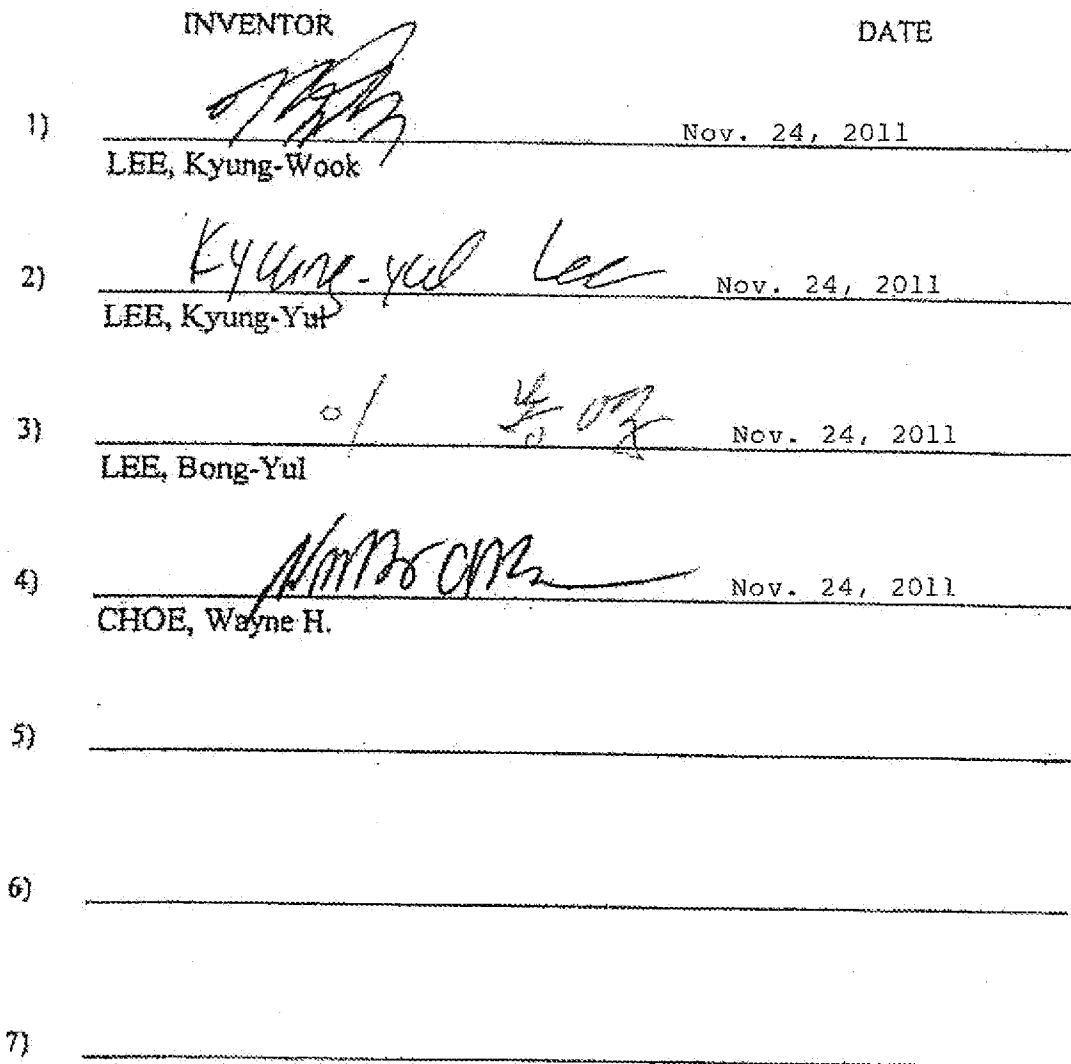 INVENTOR DATE
1) Nov. 24, 2011
LEE, Kyung-Wook
2) Kyung-yul Lee Nov. 24, 2011
LEE, Kyung-Yul
3) 이 봉열 Nov. 24, 2011
LEE, Bong-Yul
4) Nov. 24, 2011
CHOE, Wayne H.
5)
6)
7)